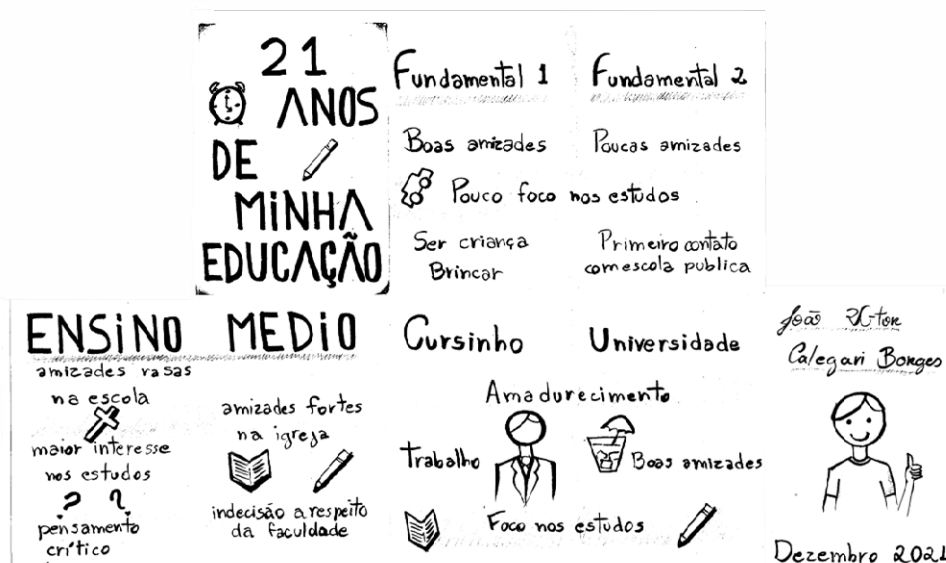 21
ANOS
DE
MiNHA
EDUCAÇÃO
Fundamental 1
Boas amizades
Fundamental 2
Poucas amizades
Pouco foco nos estudos
Ser criança
Brincar
Primeiro contato
com escola publica
ENSiNO MEDiO
amizades rasas
na escola
maior interesse
nos estudos
? ?
pensamento
crítico
amizades fortes
na igreja
indecisão a respeito
da faculdade
Cursinho
Universidade
Amadurecimento
Trabalho
Boas amizades
Foco nos estudos
João
Calegari Borges
Dezembro 2021